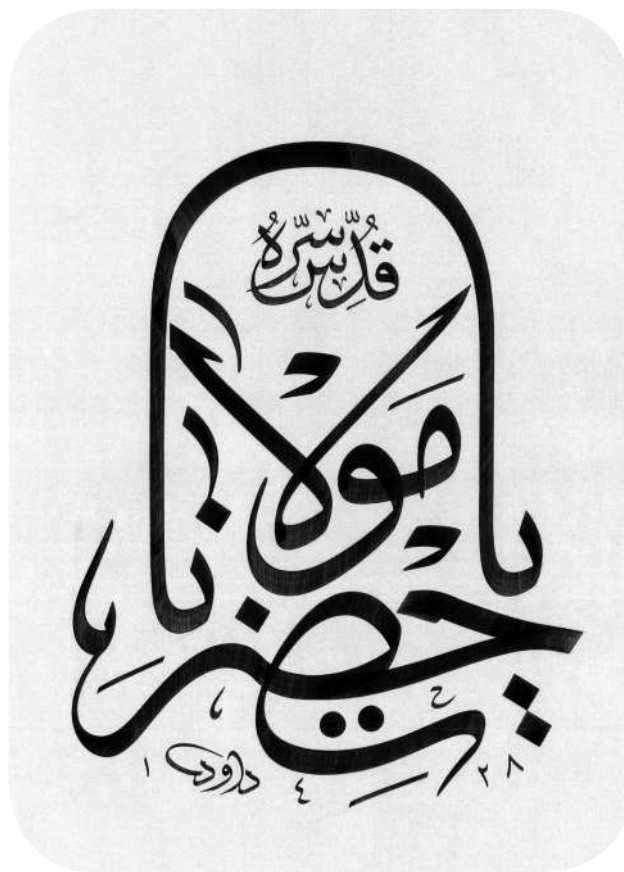 يا حضرت مولانا
قُدِّس سرّهُ
داود
١٤٢٨